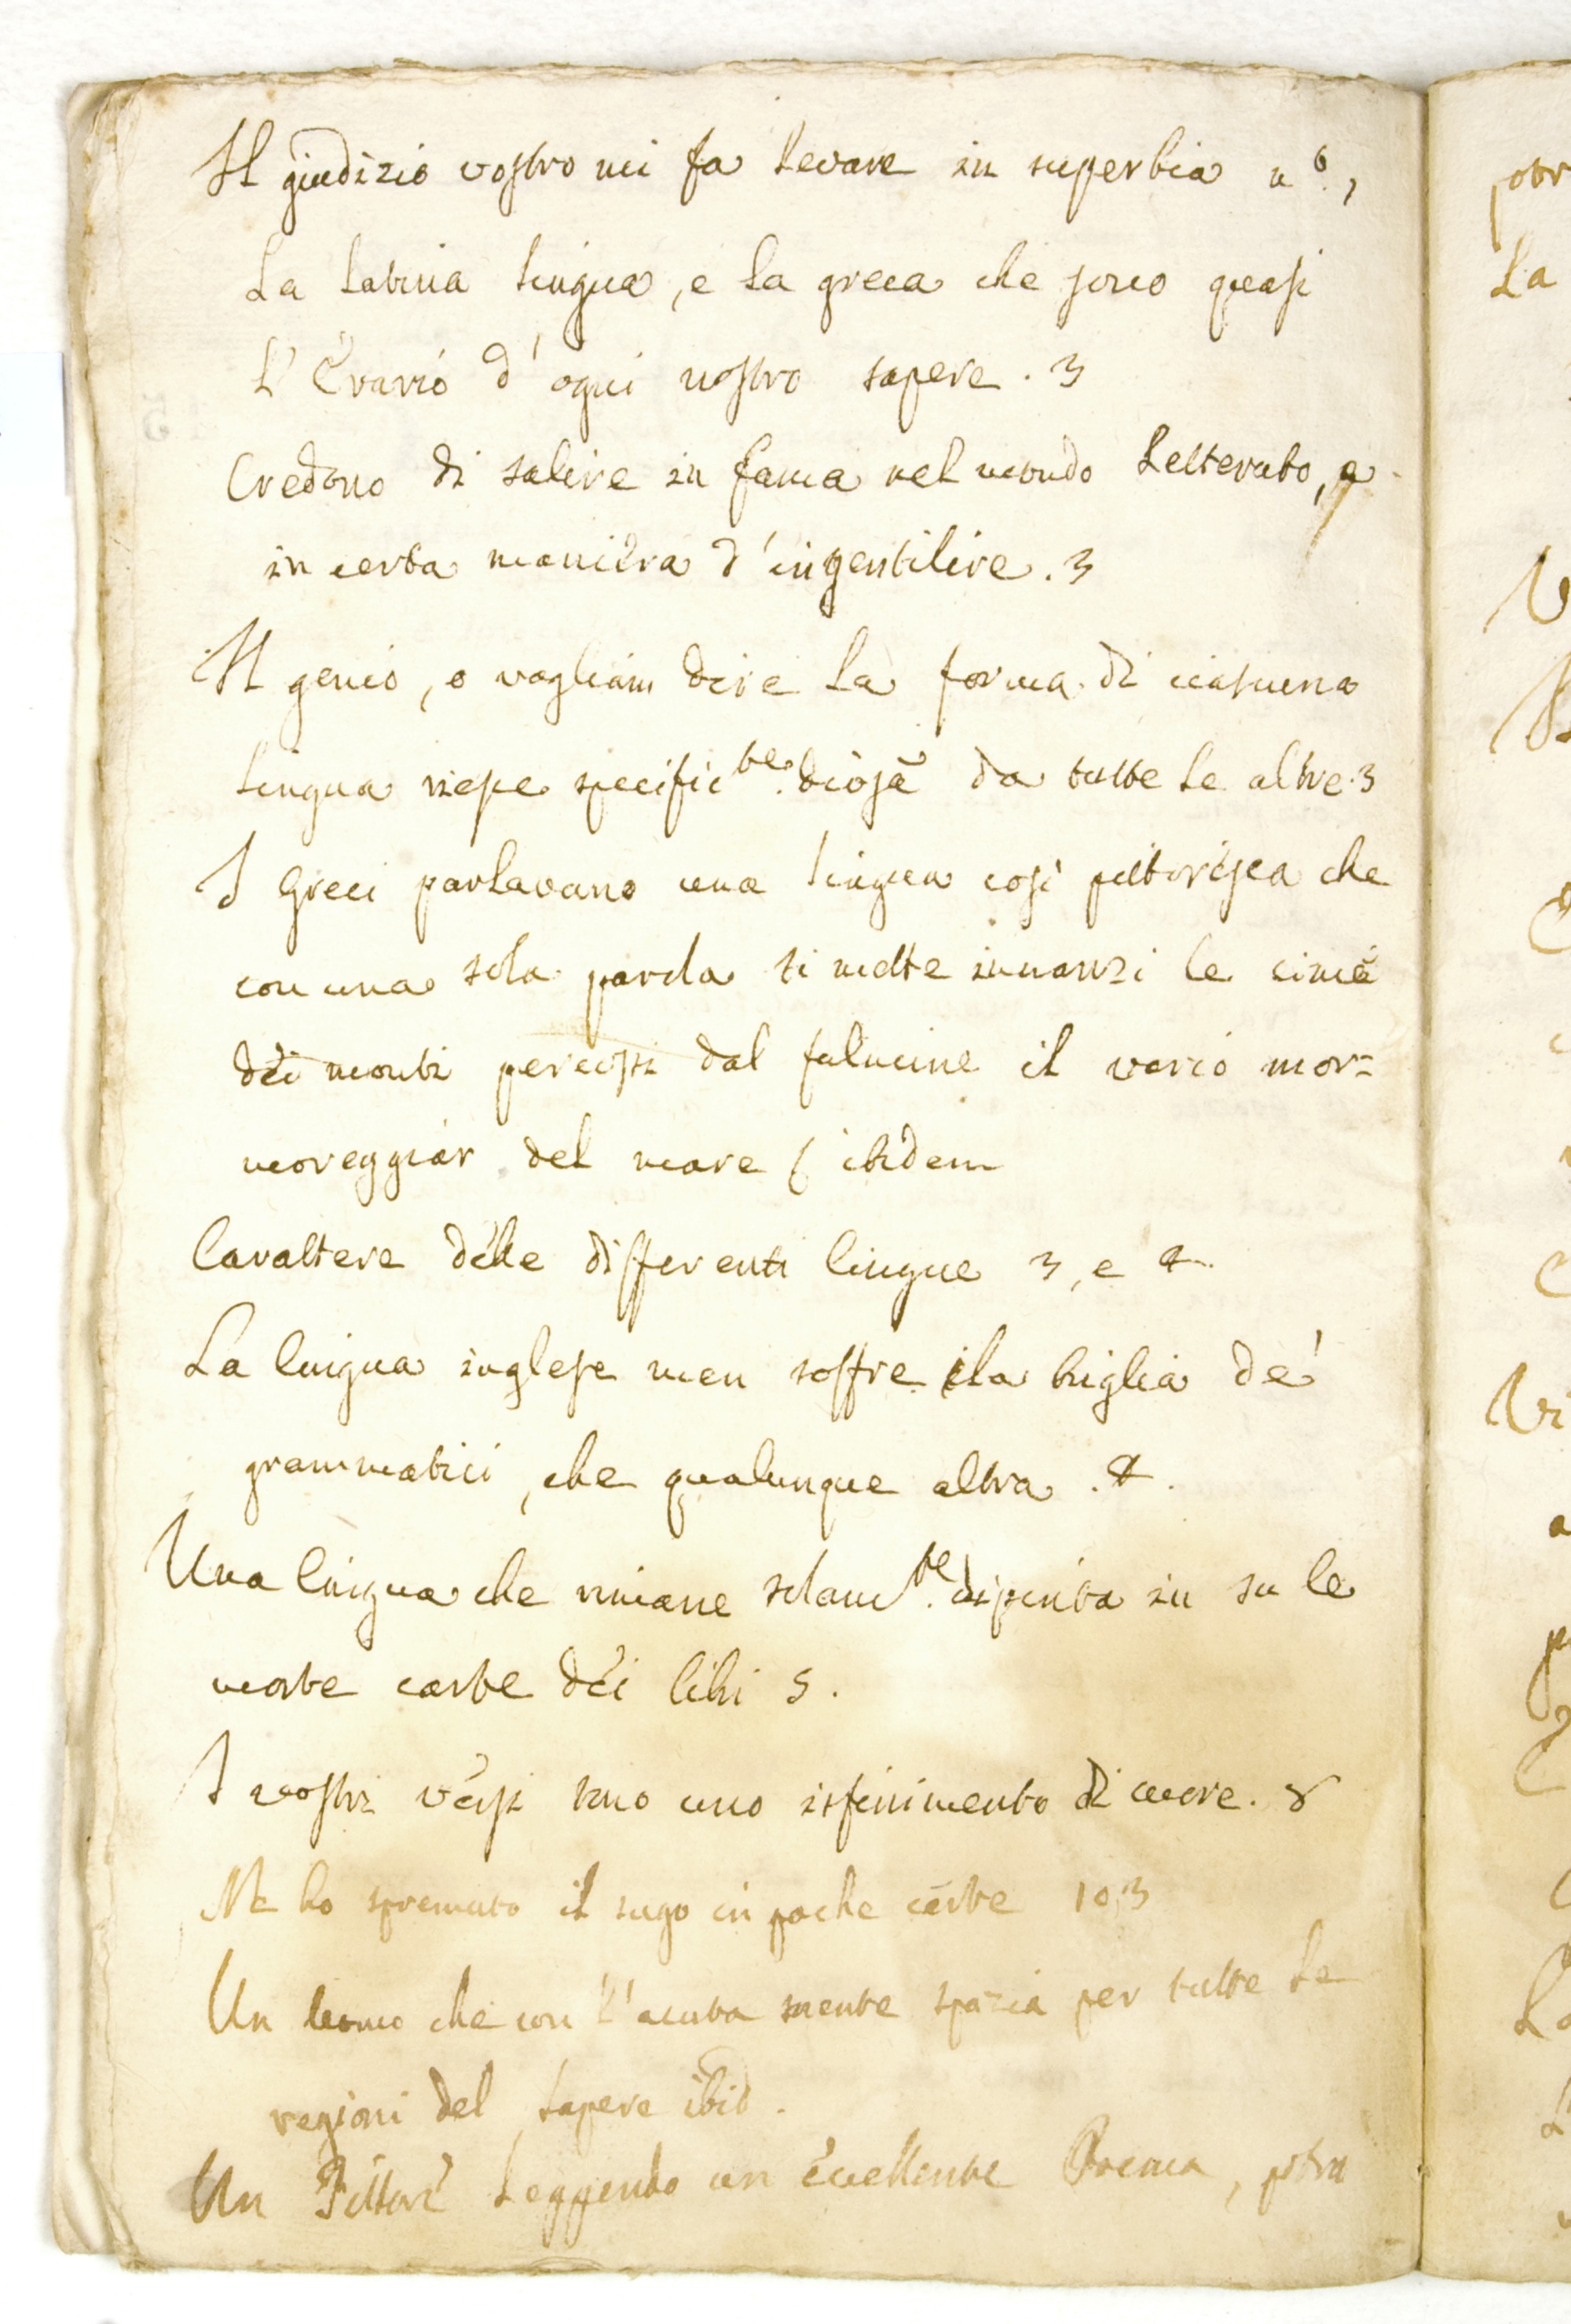 Il giudizio vostro mi fa levare in superbia n.º 1
La latina lingua, e la greca che sono quasi
l'Erario d'ogni nostro sapere. 3
Credono di salire in fama nel mondo Letterato, e
in certa maniera d'ingentilire. 3
Il genio, o vogliam dire la forma di ciascuna
lingua riesce specific.te diversa da tutte le altre. 3
I Greci parlavano una lingua così pittoresca che
con una sola parola ti mette innanzi le cime
dei monti percossi dal fulmine il vario mor=
moreggiar del mare ( ibidem
Carattere delle differenti lingue 3, e 4.
La lingua inglese men soffre la briglia de'
grammatici, che qualunque altra. 4.
Una lingua che rimane solam.te dipinta in su le
morte carte dei libri 5.
I vostri versi sono uno isfinimento di cuore. 8
Ne ho spremuto il sugo in poche carte 10,3
Un uomo che con l'acuta mente spazia per tutte le
regioni del sapere ibid.
Un Pittore leggendo un eccellente Poema, potrà
potr
La
V
Vi
a